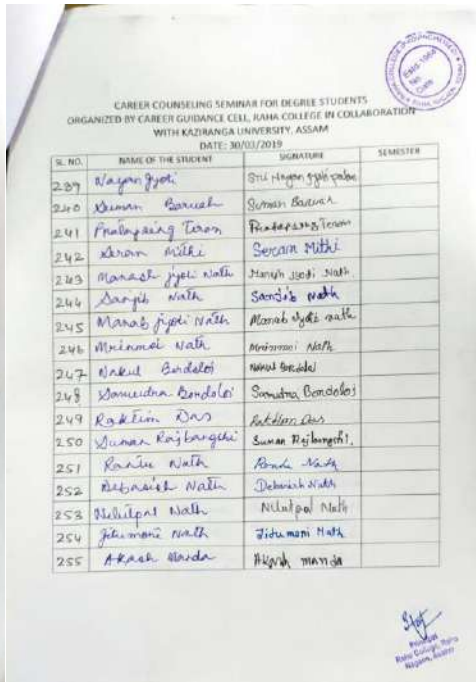 CAREER COUNSELING SEMINAR FOR DEGREE STUDENTS
ORGANIZED BY CAREER GUIDANCE CELL, RAHA COLLEGE IN COLLABORATION
WITH KAZIRANGA UNIVERSITY, ASSAM
DATE: 30/03/2019
SL. NO. NAME OF THE STUDENT SIGNATURE SEMESTER
239 Nayan Jyoti Sri Nayan Jyoti
240 Suman Baruah Suman Baruah
241 Pratapsing Teron Pratapsing Teron
242 Seram Mithi Seram Mithi
243 Manash jyoti Nath Manash Jyoti Nath.
244 Sanjib Nath Sanjib Nath
245 Manab jyoti Nath Manab Jyoti nath
246 Mrinmoi Nath Mrinmoi Nath
247 Nakul Bordoloi Nakul Bordoloi
248 Samudra Bondoloi Samudra Bondoloi
249 Raktim Das Raktim Das
250 Suman Rajbangshi Suman Rajbangshi.
251 Nath Nath
252 Debasish Nath Debasish Nath
253 Nilutpal Nath Nilutpal Nath
254 Jitumoni Nath Jitumani Nath
255 Akash Manda Akash manda
Principal
Raha College, Raha
Nagaon, Assam